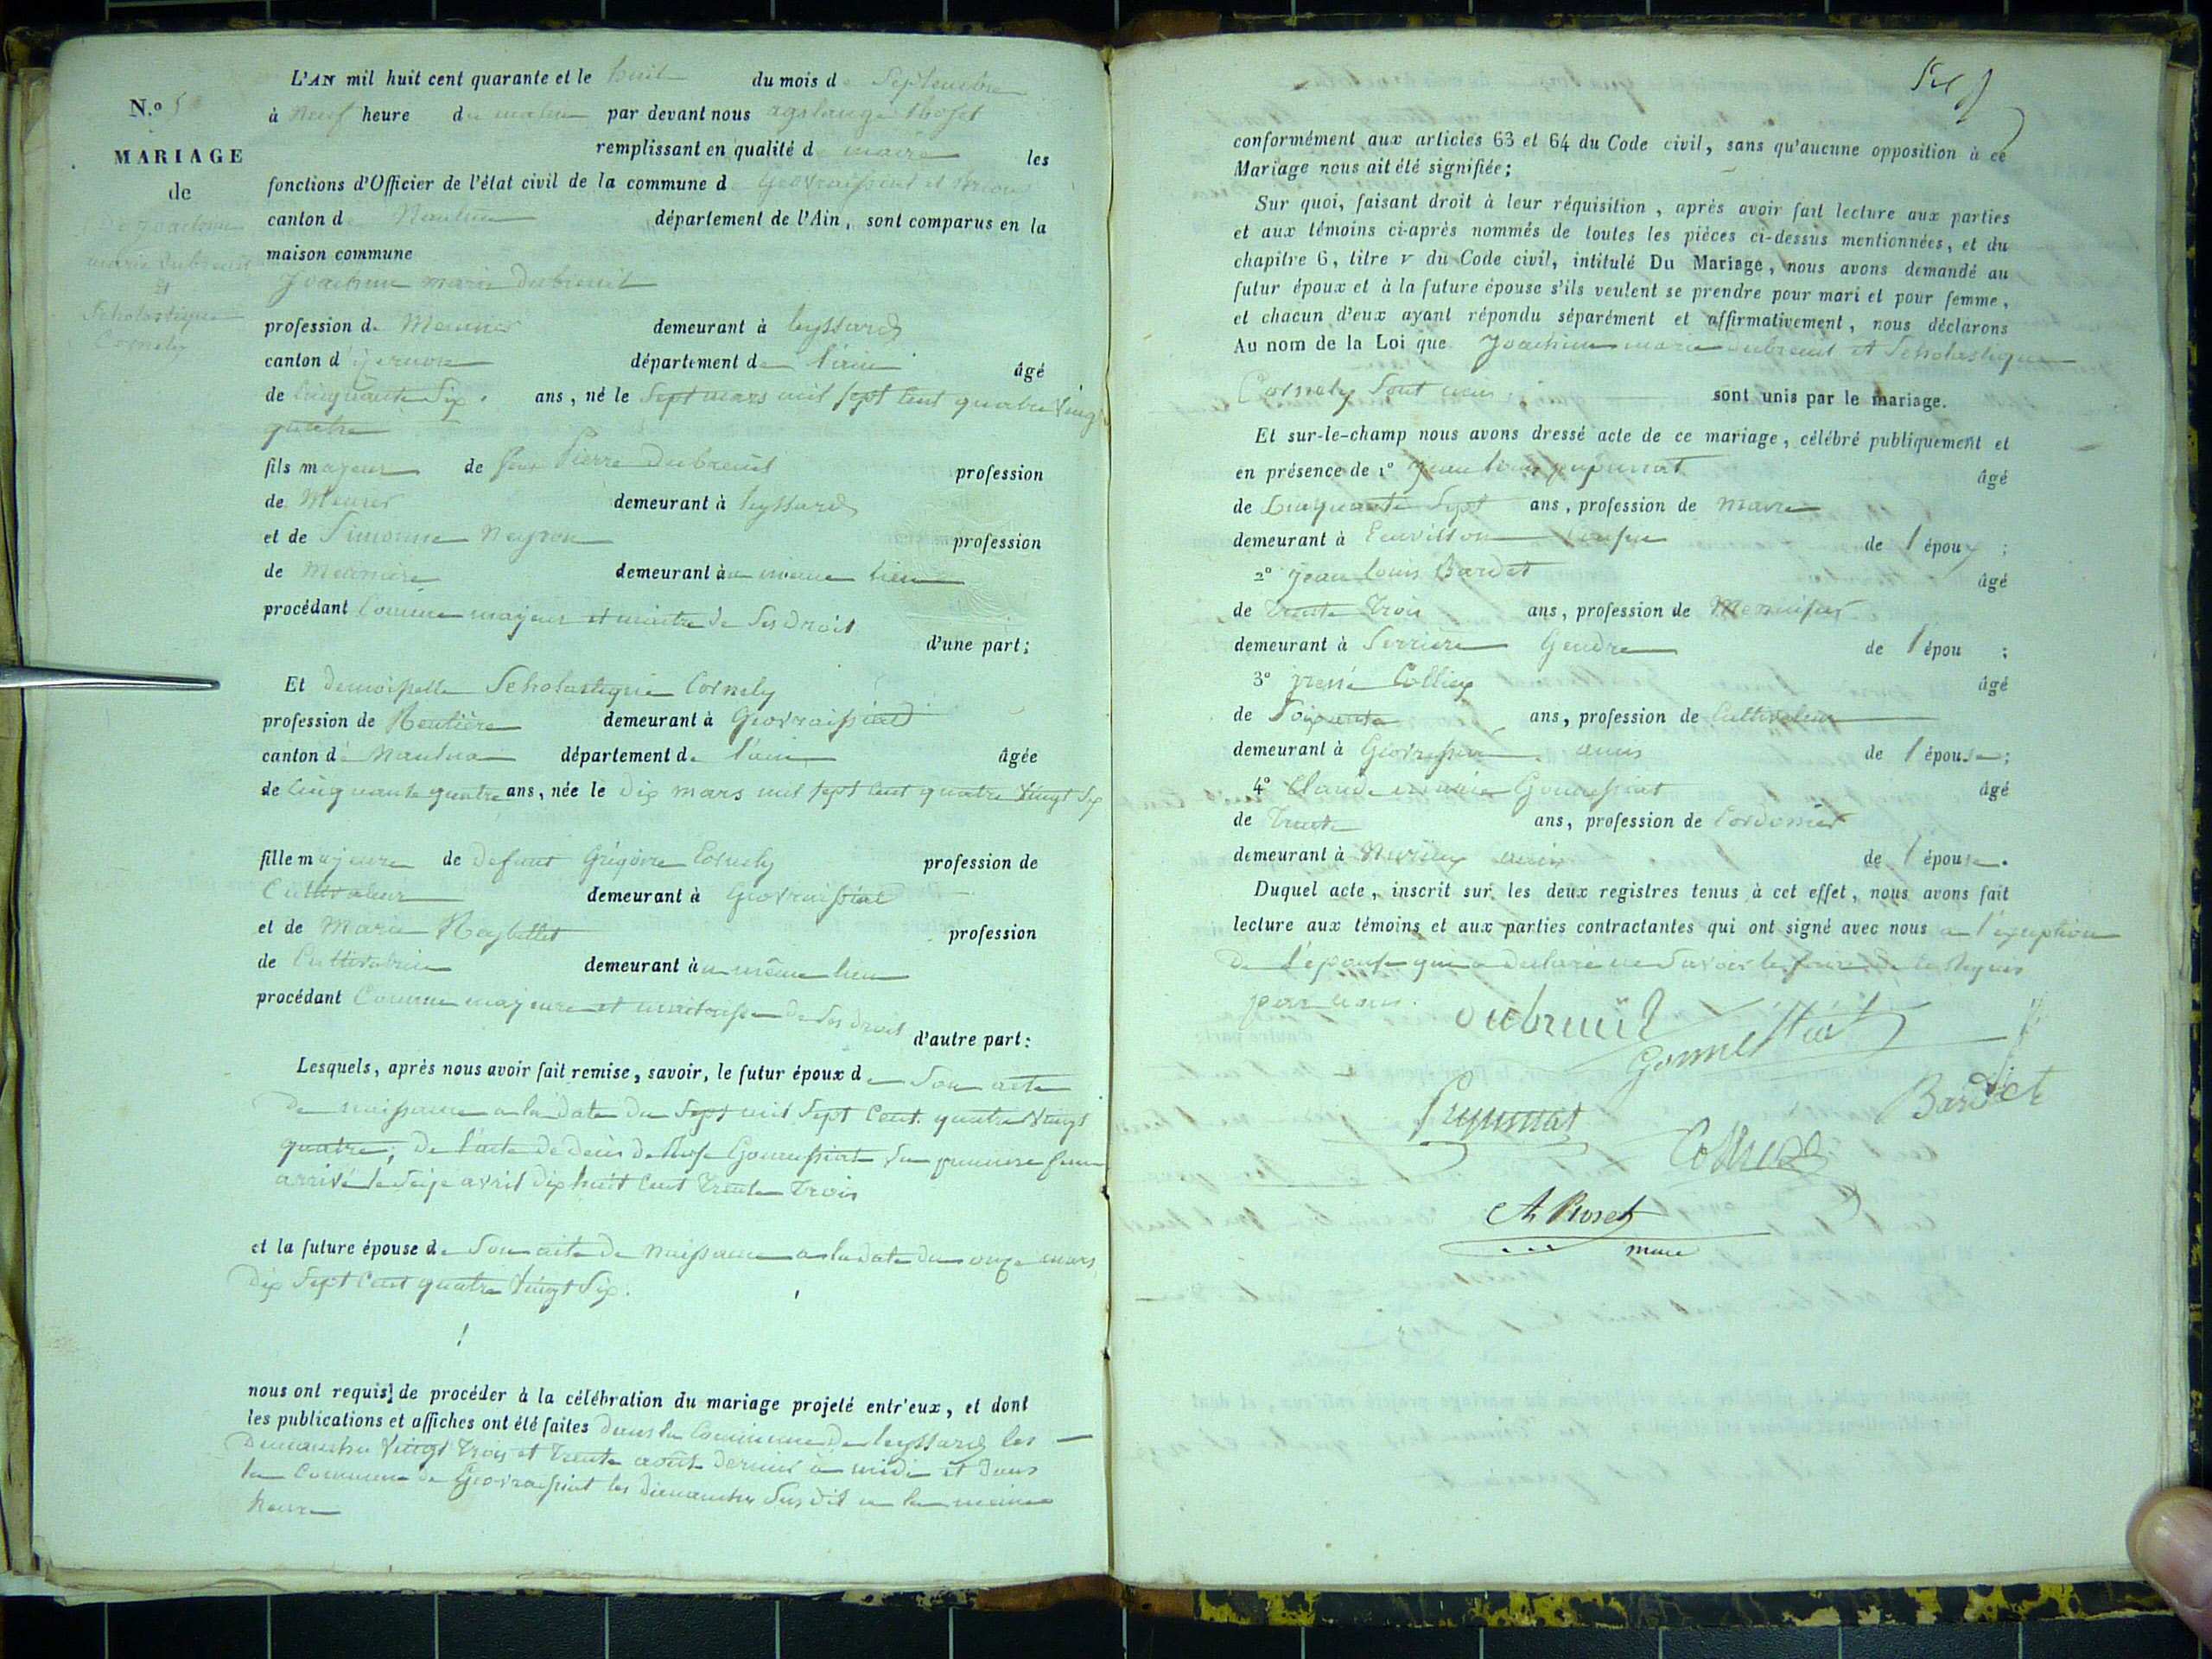 L'AN mil huit cent quarante et le huit du mois de Septembre
N.º 5
à Neuf heure du matin par devant nous
MARIAGE
remplissant en qualité de maire les
de
fonctions d'Officier de l'état civil de la commune de Géovraissiat et Brion
canton de Nantua département de l'Ain, sont comparus en la
De joachim
marie Dubreuil
et
Scholastique
Cornely
maison commune
Joachim marie Dubreuil
profession de Meunier demeurant à leyssard
canton d département de l'ain âgé
de Cinquante Six ans, né le Sept mars mil sept Cent quatre Vingt
quatre
fils majeur de feu Pierre Dubreuil profession
de Meunier demeurant à leyssard
et de Simonne Neyron profession
de Meunière demeurant à u même lieu
procédant Comme majeur et maitre de Ses Droit
d'une part;
Et demoiselle Scholastique Cornely
profession de Rentière demeurant à Géovraissiat
canton de Nantua département de l'ain âgée
de Cinquante quatre ans, née le dix mars mil sept Cent quatre Vingt Six
fille majeure de defunt Grégoire Cornely profession de
Cultivateur demeurant à Géovraissiat
et de Marie Reybellet profession
de Cultivatrice demeurant à u même lieu
procédant Comme majeure et maitresse de Ses droit d'autre part:
Lesquels, après nous avoir fait remise, savoir, le futur époux de Son acte
De naissance a la date du Sept mil Sept Cent quatre Vingt
quatre; de l'acte de décès de Gonnessiat Sa premiere femme
arrivé le Seize avril dix huit Cent Trente Trois
et la future épouse de Son acte de Naissance a la date du onze mars
Dix Sept Cent quatre Vingt Six.
nous ont requis de procéder à la célébration du mariage projeté entr'eux, et dont
les publications et affiches ont été faites dans la Commune de leyssard les
Dimanches Vingt Trois et Trente août dernier à midi et dans
la Commune de Géovraissiat les dimanches Sus dit a la même
heure
conformément aux articles 63 et 64 du Code civil, sans qu'aucune opposition à ce
Mariage nous ait été signifiée;
Sur quoi, faisant droit à leur réquisition, après avoir fait lecture aux parties
et aux témoins ci-après nommés de toutes les pièces ci-dessus mentionnées, et du
chapitre 6, titre v du Code civil, intitulé Du Mariage, nous avons demandé au
futur époux et à la future épouse s'ils veulent se prendre pour mari et pour femme,
et chacun d'eux ayant répondu séparément et affirmativement, nous déclarons
Au nom de la Loi que Joachim marie Dubreuil et Scholastique
Cornely Sont unis sont unis par le mariage.
Et sur-le-champ nous avons dressé acte de ce mariage, célébré publiquement et
en présence de 1º jean louis âgé
de Cinquante Sept ans, profession de Maire
demeurant à Cousin de l'époux;
2º jean louis Bardet âgé
de Trente Trois ans, profession de Menuisier
demeurant à Serriere Gendre de l'épou;
3º Colliex âgé
de Soixante ans, profession de Cultivateur
demeurant à amis de l'épouse;
4º Claude Gonnessiat âgé
de Trente ans, profession de Cordonier
demeurant à amis de l'épouse.
Duquel acte, inscrit sur les deux registres tenus à cet effet, nous avons fait
lecture aux témoins et aux parties contractantes qui ont signé avec nous a l'exception
De l'épouse qui a déclaré ne Savoir le faire de ce Requis
par nous.
dubreuil
Gonnessiat
Bardet
maire